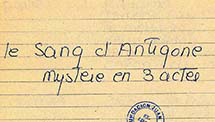 le Sang d'Antigone
Mystère en 3 actes